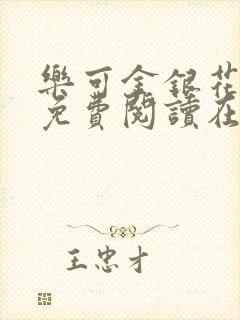 樂可金銀花
免費閱讀在
王忠才